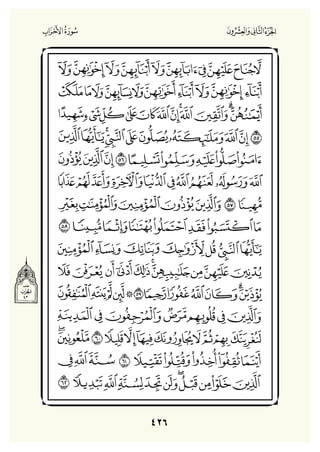 الجُزْءُ الثَّانِي وَالعِشْرُونَ
سُورَةُ الأَحْزَابِ
لَّا جُنَاحَ عَلَيْهِنَّ فِيٓ ءَابَآئِهِنَّ وَلَآ أَبْنَآئِهِنَّ وَلَآ إِخْوَٰنِهِنَّ وَلَآ
أَبْنَآءِ إِخْوَٰنِهِنَّ وَلَآ أَبْنَآءِ أَخَوَٰتِهِنَّ وَلَا نِسَآئِهِنَّ وَلَا مَا مَلَكَتْ
أَيْمَٰنُهُنَّۗ وَٱتَّقِينَ ٱللَّهَۚ إِنَّ ٱللَّهَ كَانَ عَلَىٰ كُلِّ شَيْءٍ شَهِيدًا
٥٥ إِنَّ ٱللَّهَ وَمَلَٰٓئِكَتَهُۥ يُصَلُّونَ عَلَى ٱلنَّبِيِّۚ يَٰٓأَيُّهَا ٱلَّذِينَ
ءَامَنُوا۟ صَلُّوا۟ عَلَيْهِ وَسَلِّمُوا۟ تَسْلِيمًا ٥٦ إِنَّ ٱلَّذِينَ يُؤْذُونَ
ٱللَّهَ وَرَسُولَهُۥ لَعَنَهُمُ ٱللَّهُ فِي ٱلدُّنْيَا وَٱلْءَاخِرَةِ وَأَعَدَّ لَهُمْ عَذَابًا
مُّهِينًا ٥٧ وَٱلَّذِينَ يُؤْذُونَ ٱلْمُؤْمِنِينَ وَٱلْمُؤْمِنَٰتِ بِغَيْرِ
مَا ٱكْتَسَبُوا۟ فَقَدِ ٱحْتَمَلُوا۟ بُهْتَٰنًا وَإِثْمًا مُّبِينًا ٥٨
يَٰٓأَيُّهَا ٱلنَّبِيُّ قُل لِّأَزْوَٰجِكَ وَبَنَاتِكَ وَنِسَآءِ ٱلْمُؤْمِنِينَ
يُدْنِينَ عَلَيْهِنَّ مِن جَلَٰبِيبِهِنَّۚ ذَٰلِكَ أَدْنَىٰٓ أَن يُعْرَفْنَ فَلَا
يُؤْذَيْنَۗ وَكَانَ ٱللَّهُ غَفُورًا رَّحِيمًا ٥٩ ۞ لَّئِن لَّمْ يَنتَهِ ٱلْمُنَٰفِقُونَ
وَٱلَّذِينَ فِي قُلُوبِهِم مَّرَضٌ وَٱلْمُرْجِفُونَ فِي ٱلْمَدِينَةِ
لَنُغْرِيَنَّكَ بِهِمْ ثُمَّ لَا يُجَاوِرُونَكَ فِيهَآ إِلَّا قَلِيلًا ٦٠ مَّلْعُونِينَۖ
أَيْنَمَا ثُقِفُوٓا۟ أُخِذُوا۟ وَقُتِّلُوا۟ تَقْتِيلًا ٦١ سُنَّةَ ٱللَّهِ فِي
ٱلَّذِينَ خَلَوْا۟ مِن قَبْلُۖ وَلَن تَجِدَ لِسُنَّةِ ٱللَّهِ تَبْدِيلًا ٦٢
الحزب
٤٣
٤٢٦